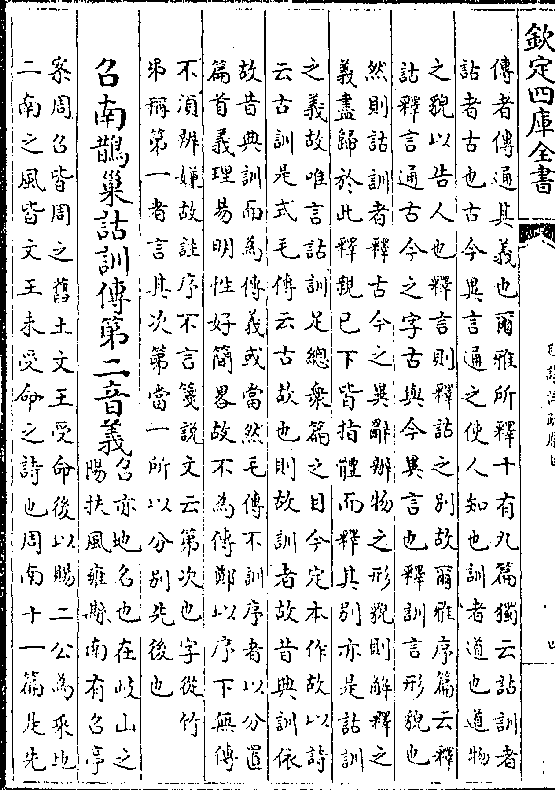 欽定四庫全書
傳者傳通其義也爾雅所釋十有九篇獨云詁訓者
詁者古也古今異言通之使人知也訓者道也道物
之貌以告人也釋言則釋詁之别故爾雅序篇云釋
詁釋言通古今之字古與今異言也釋訓言形貌也
然則詁訓者釋古今之異辭辨物之形貌則解釋之
義盡歸於此釋親已下皆指體而釋其别亦是詁訓
之義故唯言詁訓足總衆篇之目今定本作故以詩
云古訓是式毛傳云古故也則故訓者故昔典訓依
故昔典訓而為傳義或當然毛傳不訓序者以分置
篇首義理易明性好簡畧故不為傳鄭以序下無傳
不須辨嫌故註序不言箋說文云第次也字從竹
弟稱第一者言其次第當一所以分别先後也
召南鵲巢詁訓傳第二音義召亦地名也在岐山之
陽扶風雍縣南有召亭
案周召皆周之舊土文王受命後以賜二公為采地
二南之風皆文王未受命之詩也周南十一篇是先